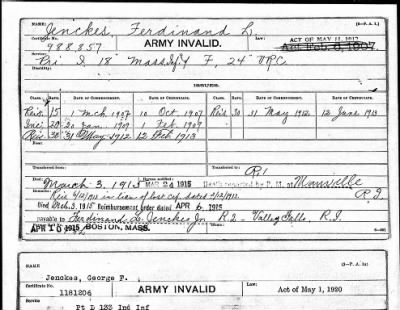 NAME (3—P. A. 1.)
Jenckes, Ferdinand L
Certificate No. LAW
988,857 ARMY INVALID. ACT OF MAY 11, 1912
Act Feb. 6, 1907
Service:
Pri I 18" Mass Inf F, 24" VRC
Disability:
CLASS. RATE. DATE OF COMMENCEMENT. DATE OF CERTIFICATE. CLASS. RATE. DATE OF COMMENCEMENT. DATE OF CERTIFICATE.
15 1 Mch 1907 10 Oct 1907 Reis 30 11 May 1912 12 June 1913
Inc 20 Jan. 1909 1 Feb. 1909
Reis 30 31 May 1912 12 Feb 1913
Transferred from Transferred to
R.I.
Died
March 3, 1915 MAR 24 1915 Death reported by P. M. at Manville
R. I.
Died Mch. 3, 1915 Reimbursement order dated APR 6 1915
payable to Ferdinand Jenckes Jr R 2 - Valley Falls, R. I.
APR 10 1915 BOSTON, MASS.
NAME (3—P. A. 1a)
Jenckes, George P.
Certificate No. LAW
1181206 ARMY INVALID Act of May 1, 1920
Service
Pt L 133 Ind Inf